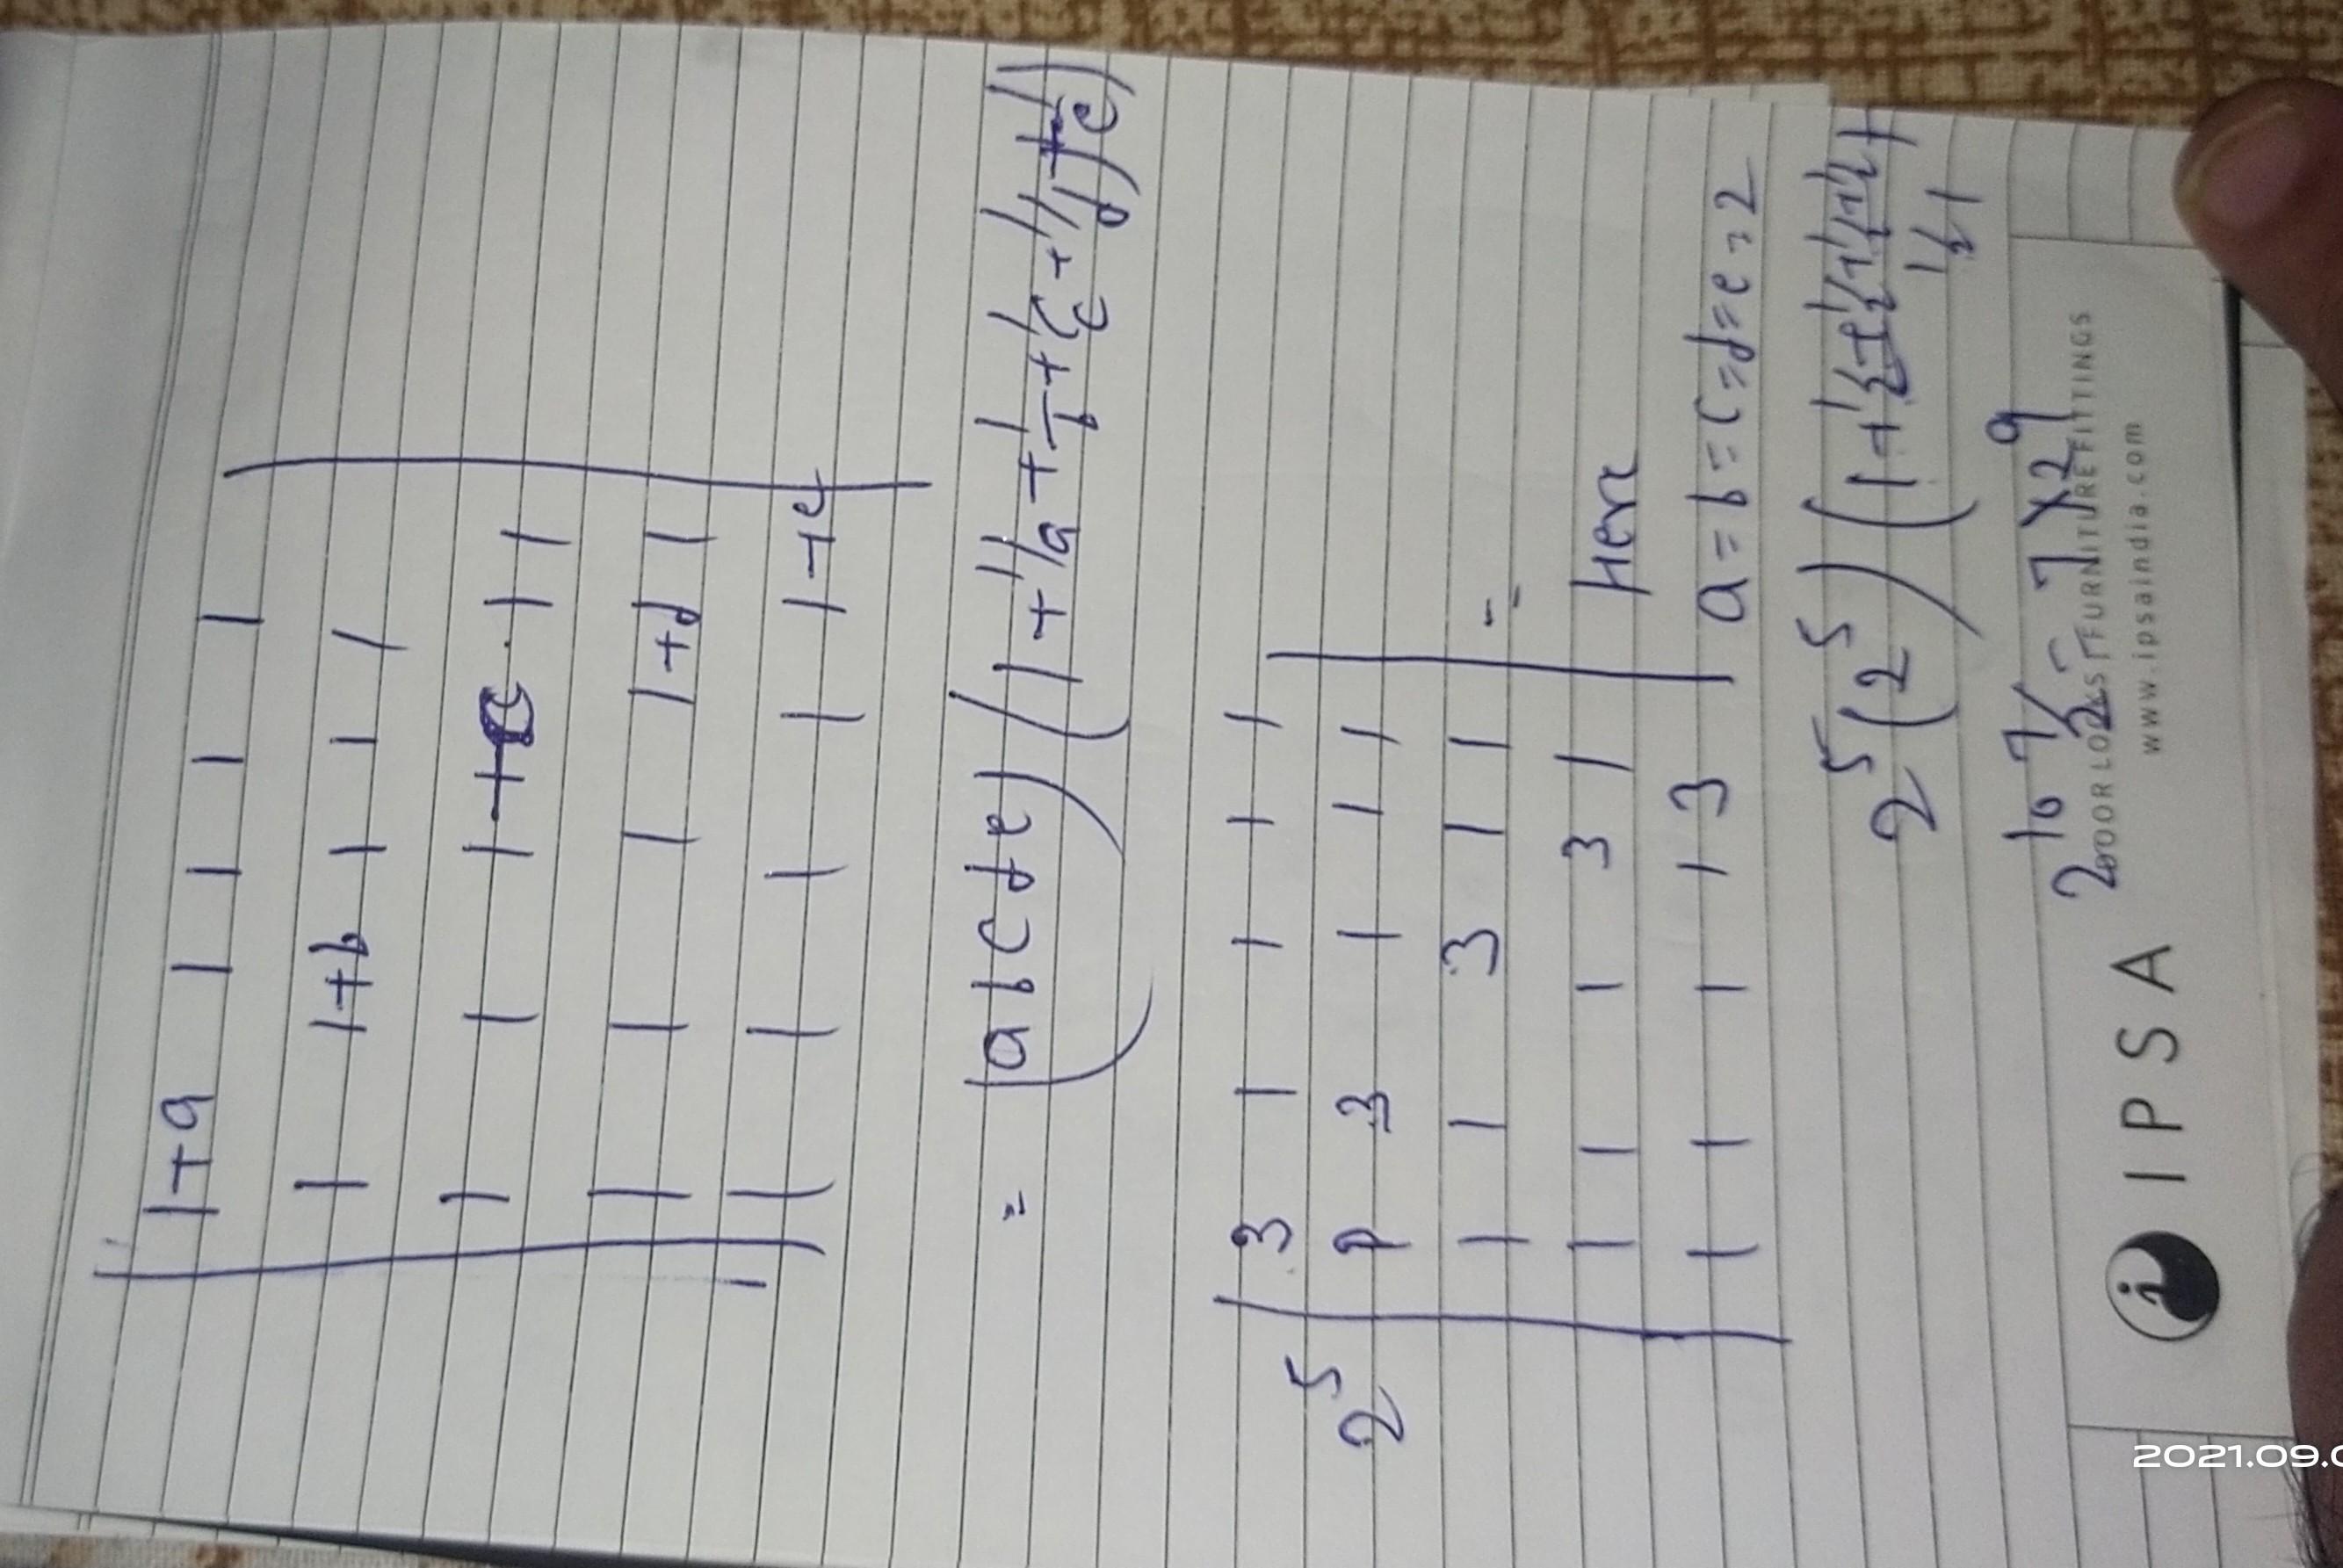 1+a 1 1 1 1
1 1+b 1 1 1
1 1 1+c 1 1
1 1 1 1+d 1
1 1 1 1 1+e
= (abcde) (1+1/a+1/b+1/c+1/d+1/e)
2^5 | 3 1 1 1 1 |
3 1 1 1
1 1 3 1 1 =
1 1 1 3 1 Here
1 1 1 1 3 a=b=c=d=e=2
2^5 (2^5) (1+1/2+1/2+1/2+1/2+
1/2)
2^10 7/2 = 7×2^9
DOOR LOCKS FURNITURE FITTINGS
IPSA www.ipsaindia.com
2021.09.0